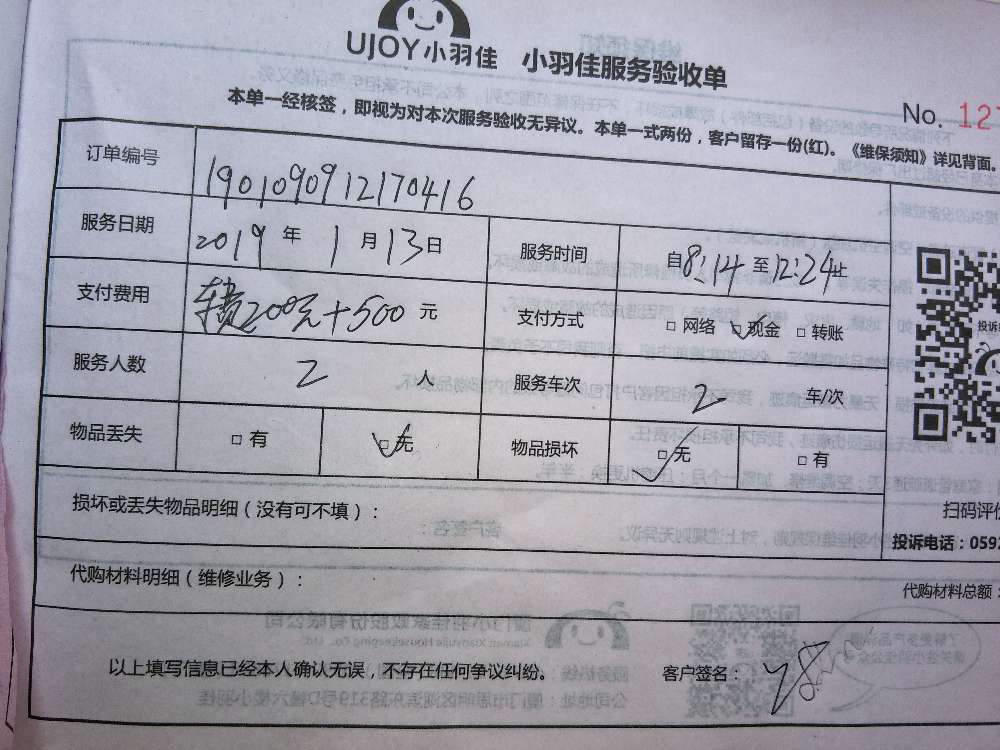 UJOY小羽佳 小羽佳服务验收单
No. 127
本单一经核签，即视为对本次服务验收无异议。本单一式两份，客户留存一份(红)。《维保须知》详见背面。
订单编号 1901090912170416
服务日期 2019 年 1 月 13 日 服务时间 自 8:14 至 12:24 止
支付费用 车费200元+500 元 支付方式 □ 网络 □ 现金 □ 转账
服务人数 2 人 服务车次 2 车/次
物品丢失 □ 有 □ 无 物品损坏 □ 无 □ 有
损坏或丢失物品明细（没有可不填）：
扫码评价
投诉电话：059
代购材料明细（维修业务）：
代购材料总额：
以上填写信息已经本人确认无误，不存在任何争议纠纷。 客户签名：